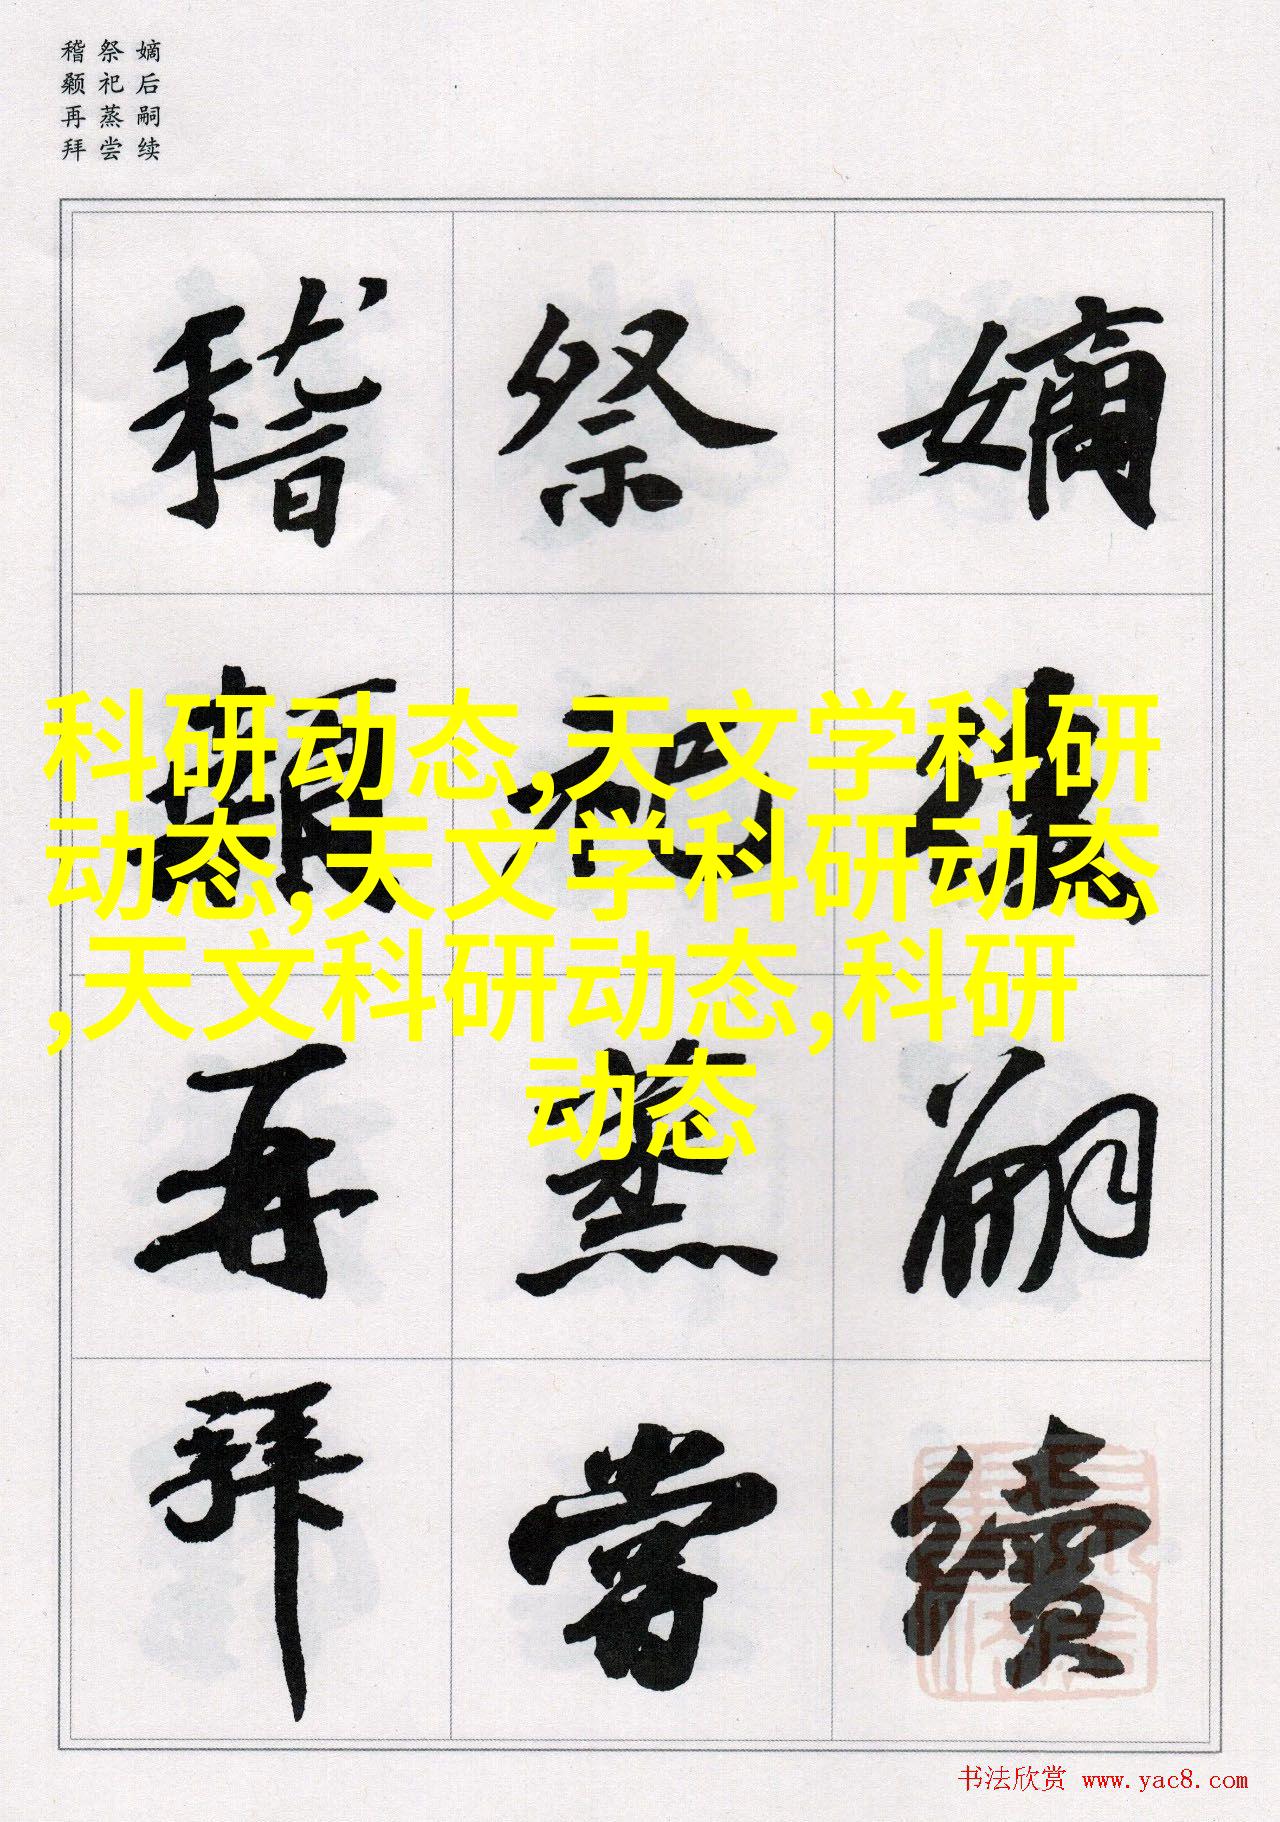 嫡后嗣续
祭祀蒸尝
稽颡再拜
嫡後嗣續
祭祀蒸嘗
稽顙再拜
科研动态,天文学科研
动态,天文学科研动态
,天文科研动态,科研
动态
书法欣赏 www.yac8.com